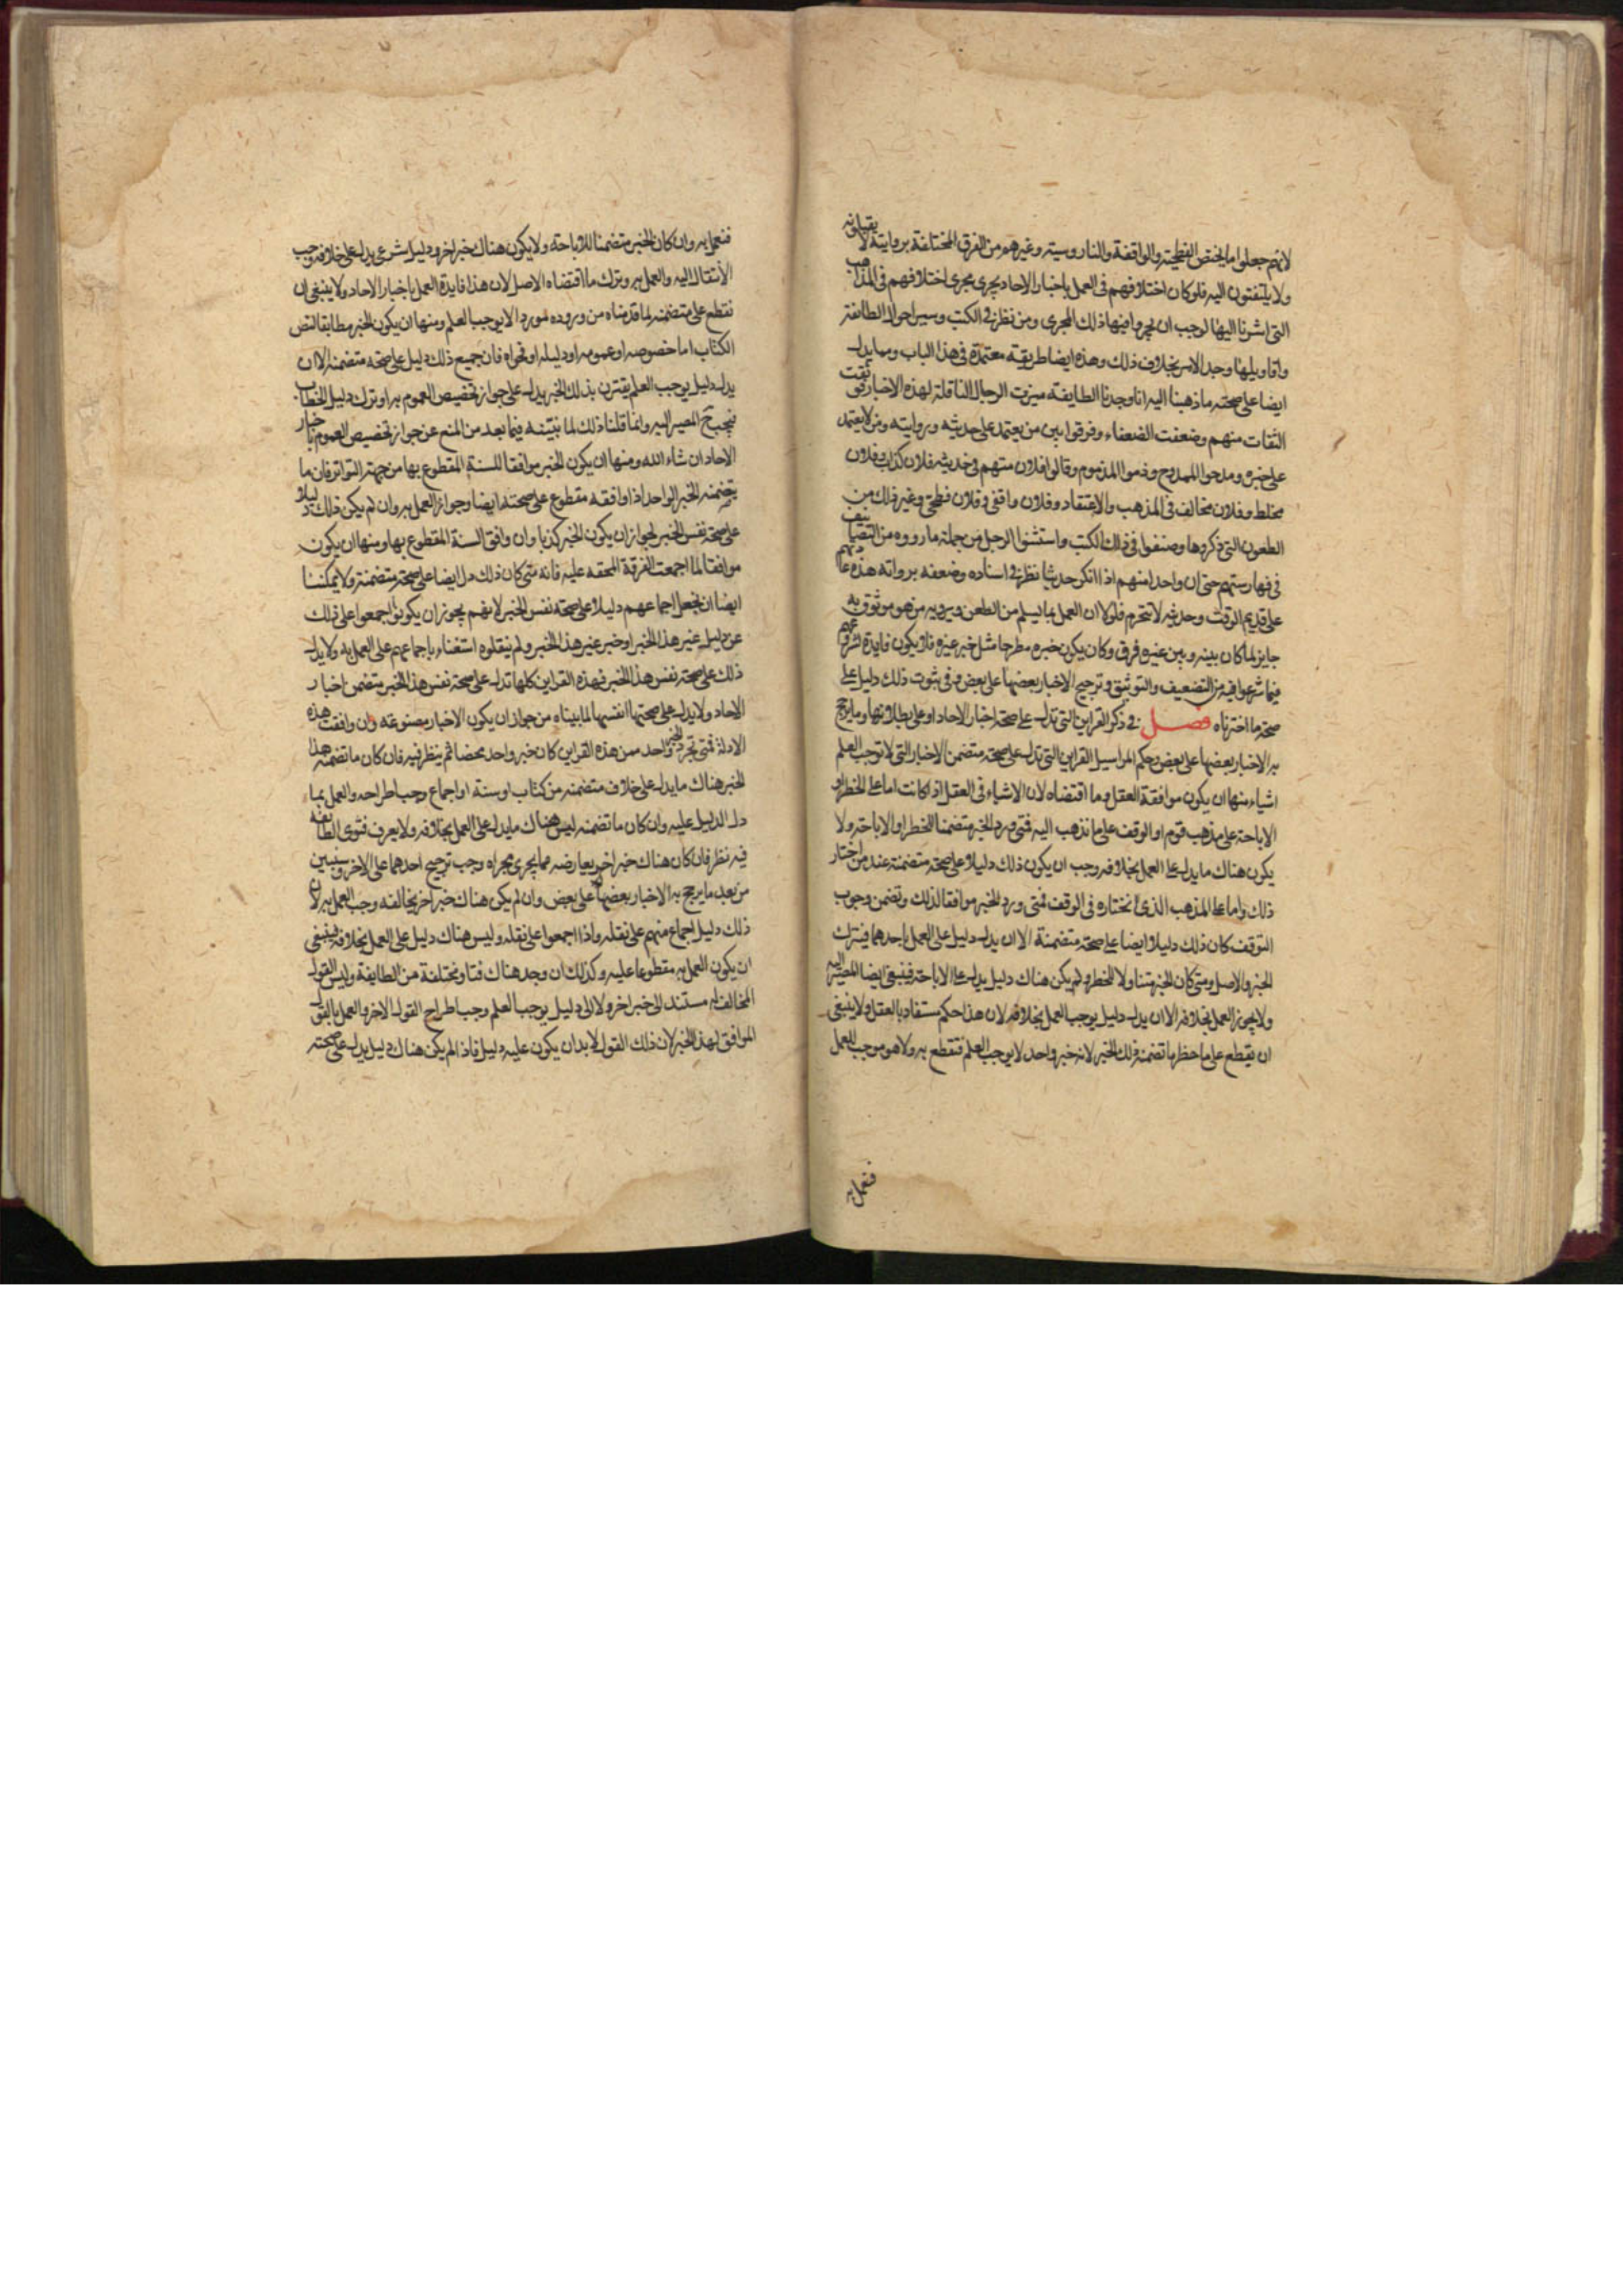 لانهم جعلوا ما يختص الفطحية والواقفة والناووسية وغيرهم من الفرق المختلفة بروايته لا يقبلونه
ولا يلتفتون اليه فلو كان اختلافهم في العمل باخبار الاحاد يجري مجرى اختلافهم في المذاهب
التي اشرنا اليها لوجب ان يجروا فيها ذلك المجرى ومن نظر في الكتب وسير احوال الطائفة
واقاويلها وجد الامر بخلاف ذلك وهذه ايضا طريقة معتمدة في هذا الباب ومما يدل
ايضا على صحته ما ذهبنا اليه انا وجدنا الطايفة ميزت الرجال الناقلة لهذه الاخبار فوثقت
الثقات منهم وضعفت الضعفاء وفرقوا بين من يعتمد على حديثه وروايته ومن لا يعتمد
على خبره ومدحوا الممدوح وذموا المذموم وقالوا فلان متهم في حديثه فلان كذاب وفلان
مخلط وفلان مخالف في المذهب والاعتقاد وفلان واقفي وفلان فطحي وغير ذلك من
الطعون التي ذكروها وصنفوا في ذلك الكتب واستثنوا الرجل من جملة ما رووه من التصانيف
في فهارستهم حتى ان واحدا منهم اذا انكر حديثا نظر في اسناده وضعفه برواته هذه عادتهم
على قديم الوقت وحديثه لا تنخرم فلولا ان العمل بما يسلم من الطعن ويرويه من هو موثوق به
جايز لما كان بينه وبين غيره فرق وكان يكون خبره مطرحا مثل خبر غيره فلا يكون فايدة لشروعهم
فيما شرعوا فيه من التضعيف والتوثيق وترجيح الاخبار بعضها على بعض وفي ثبوت ذلك دليل على
صحة ما اخترناه فصل في ذكر القراين التي تدل على صحة اخبار الاحاد او على بطلانها وما يرجح
به الاخبار بعضها على بعض وحكم المراسيل القراين التي تدل على صحة متضمن الاخبار التي لا توجب العلم
اشياء منها ان يكون موافقة العقل وما اقتضاه لان الاشياء في العقل اذا كانت اما على الحظر او
الاباحة على مذهب قوم او الوقف على ما نذهب اليه فمتى ورد الخبر متضمنا للحظر او الاباحة ولا
يكون هناك ما يدل على العمل بخلافه وجب ان يكون ذلك دليلا على صحة متضمنه عند من اختار
ذلك واما على المذهب الذي نختاره في الوقف فمتى ورد الخبر موافقا لذلك وتضمن وجوب
التوقف كان ذلك دليلا ايضا على صحة متضمنة الا ان يدل دليل على العمل باحدهما فيترك
الخبر والاصل ومتى كان الخبر متناولا للحظر ولم يكن هناك دليل يدل على الاباحة فينبغي ايضا المصير اليه
ولا يجوز العمل بخلافه الا ان يدل دليل يوجب العمل بخلافه لان هذا حكم مستفاد بالعقل ولا ينبغي
ان يقطع على ما حظر ما تضمنه ذلك الخبر لانه خبر واحد لا يوجب العلم فنقطع به ولا هو موجب للعمل
فنعمل به
فنعمل به وان كان الخبر متضمنا للاباحة ولا يكون هناك خبر اخر ودليل شرعي يدل على خلافه وجب
الانتقال اليه والعمل به وترك ما اقتضاه الاصل لان هذا فايدة العمل باخبار الاحاد ولا ينبغي ان
نقطع على متضمنه لما قدمناه من وروده لمورد الايوجب العلم ومنها ان يكون الخبر مطابقا لنص
الكتاب اما خصوصه او عمومه او دليله او فحواه فان جميع ذلك دليل على صحة متضمنه الا ان
يدل دليل يوجب العلم يقترن بذلك الخبر يدل على جواز تخصيص العموم به او ترك دليل الخطاب
فيجب ح المصير اليه وانما قلنا ذلك لما نبينه فيما بعد من المنع عن جواز تخصيص العموم باخبار
الاحاد ان شاء الله ومنها ان يكون الخبر موافقا للسنة المقطوع بها من جهة التواتر فان ما
يتضمنه الخبر الواحد اذا وافقه مقطوع على صحته ايضا وجواز العمل به وان لم يكن ذلك دليلا
على صحة نفس الخبر لجواز ان يكون الخبر كذبا وان وافق السنة المقطوع بها ومنها ان يكون
موافقا لما اجمعت الفرقة المحقه عليه فانه متى كان ذلك دل ايضا على صحة متضمنه ولا يمكننا
ايضا ان نجعل اجماعهم دليلا على صحة نفس الخبر لانهم يجوز ان يكونوا اجمعوا على ذلك
عن دليل غير هذا الخبر او خبر غير هذا الخبر ولم ينقلوه استغناء باجماعهم على العمل به ولا يدل
ذلك على صحة نفس هذا الخبر فهذه القراين كلها تدل على صحة نفس هذا الخبر متضمن اخبار
الاحاد ولا يدل على صحتها انفسها لما بيناه من جواز ان يكون الاخبار مصنوعه وان وافقت هذه
الادلة فمتى تجرد الخبر واحد من هذه القراين كان خبر واحد محضا ثم ينظر فيه فان كان ما تضمنه هذا
الخبر هناك ما يدل على خلاف متضمنه من كتاب او سنة او اجماع وجب اطراحه والعمل بما
دل الدليل عليه وان كان ما تضمنه ليس هناك ما يدل على العمل بخلافه ولا يعرف فتوى الطائفه
فيه نظر فان كان هناك خبر اخر يعارضه مما يجري مجراه وجب ترجيح احدهما على الاخر وسنبين
من بعد ما يرجح به الاخبار بعضها على بعض وان لم يكن هناك خبر اخر يخالفه وجب العمل به لان
ذلك دليل اجماع منهم على نقله واذا اجمعوا على نقله وليس هناك دليل على العمل بخلافه فينبغي
ان يكون العمل به مقطوعا عليه وكذلك ان وجد هناك فتاو مختلفة من الطايفة وليس القول
المخالف له مستند الى خبر اخر ولا الى دليل يوجب العلم وجب اطراح القول الاخر والعمل بالقول
الموافق لهذا الخبر لان ذلك القول لا بد ان يكون عليه دليل فاذا لم يكن هناك دليل يدل على صحته